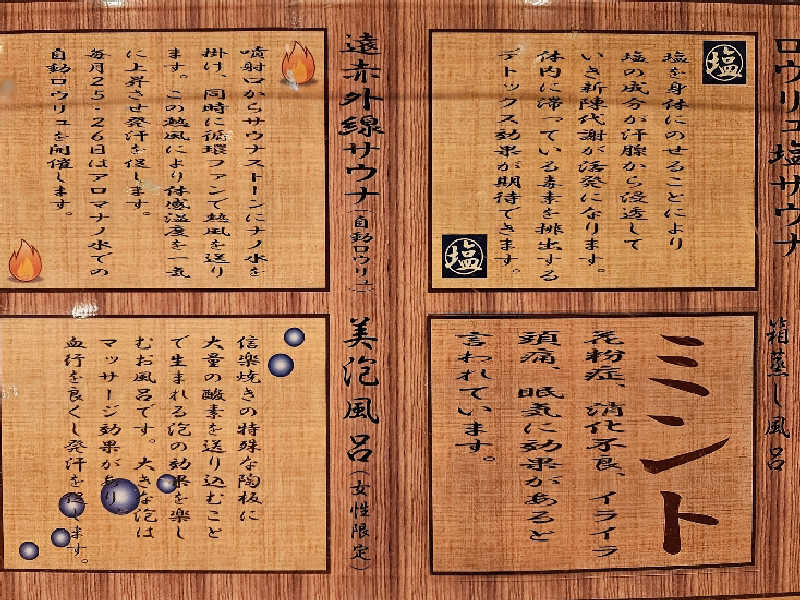 ロウリュ塩サウナ
塩
塩を身体にのせることにより
塩の成分が汗腺から浸透して
いき新陳代謝が活発になります。
体内に滞っている毒素を排出する
デトックス効果が期待できます。
塩
遠赤外線サウナ(自動ロウリュ)
噴射口からサウナストーンにナノ水を
掛け、同時に循環ファンで熱風を送り
ます。この熱風により体感温度を一気
に上昇させ発汗を促します。
毎月25・26日はアロマナノ水での
自動ロウリュを開催します。
箱蒸し風呂
ミント
花粉症、消化不良、イライラ
頭痛、眠気に効果があると
言われています。
美泡風呂(女性限定)
信楽焼きの特殊な陶板に
大量の酸素を送り込むこと
で生まれる泡の効果を楽し
むお風呂です。大きな泡は
マッサージ効果があり
血行を良くし発汗を促します。